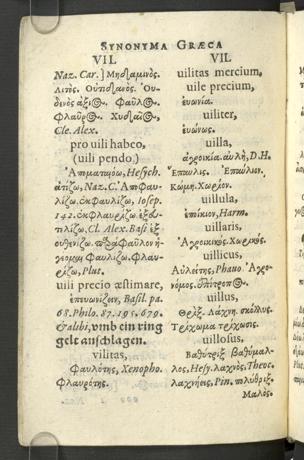 SYNONYMA GRÆCA
VIL
Naz. Car.] Μηδαμινός.
Λιτός. Οὐτιδανός. Οὐ-
δενὸς ἄξιος. Φαῦλος.
Φλαῦρος. Χυδαῖος,
Cle. Alex.
pro uili habeo,
(uili pendo.)
Ἀτιμαπμόω, Hesych.
ἀτίζω, Naz. C. Ἀποφαυ-
λίζω. ἐκφαυλίζω, Iosep.
142. ἐκφλαυρίζω. ἐξου-
τιλίζω. Cl. Alex. Basi ἐξ-
ουθενίζω. Φαῦλον ἡ-
γοῦμαι Φαυλίζω. Φλαυ-
ρίζω, Plut.
uili precio æstimare,
ἐπευωνίζειν, Basil. pa.
68. Philo. 87. 195. 679.
& alibi, vmb ein ring
gelt anschlagen.
vilitas,
Φαυλότης, Xenopho.
Φλαυρότης.
VIL
uilitas mercium,
uile precium,
εὐωνία.
uiliter,
εὐώνως.
uilla,
ἀγροικία. αὐλὴ, D.H.
Ἔπαυλις. Ἐπαύλιον.
Κώμη. Χωρίον.
uillula,
ἐποίκιον, Harm.
uillaris,
Ἀγροικικός. Χωρικός.
uillicus,
Αὐλείτης, Phauo. Ἀγρο-
νόμος. ἐπίτροπος.
uillus,
Θρὶξ. Λάχνη. σκόλυς.
Τρίχωμα τρίχωσις.
uillosus,
Βαθύτριξ βαθύμαλ-
λος, Hesy. λάχνος, Theoc.
λαχνήεις, Pin. πολύθριξ.
Μαλὸς.